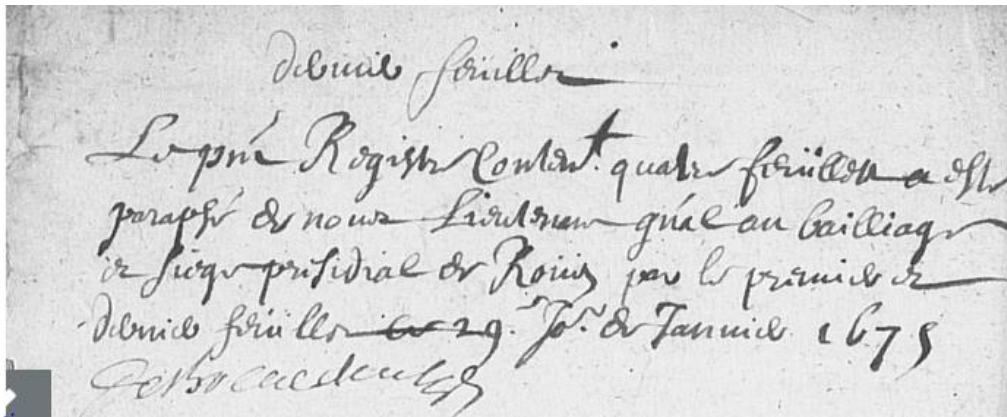 dernier feuillet
Le pnt Registre Conten.t quatre feuillets a esté
paraphé de nous Lieutenant gnal au bailliage
et siege presidial de Roüen par le premier et
dernier feuillet ce 29.e Jor. de Januier 1675